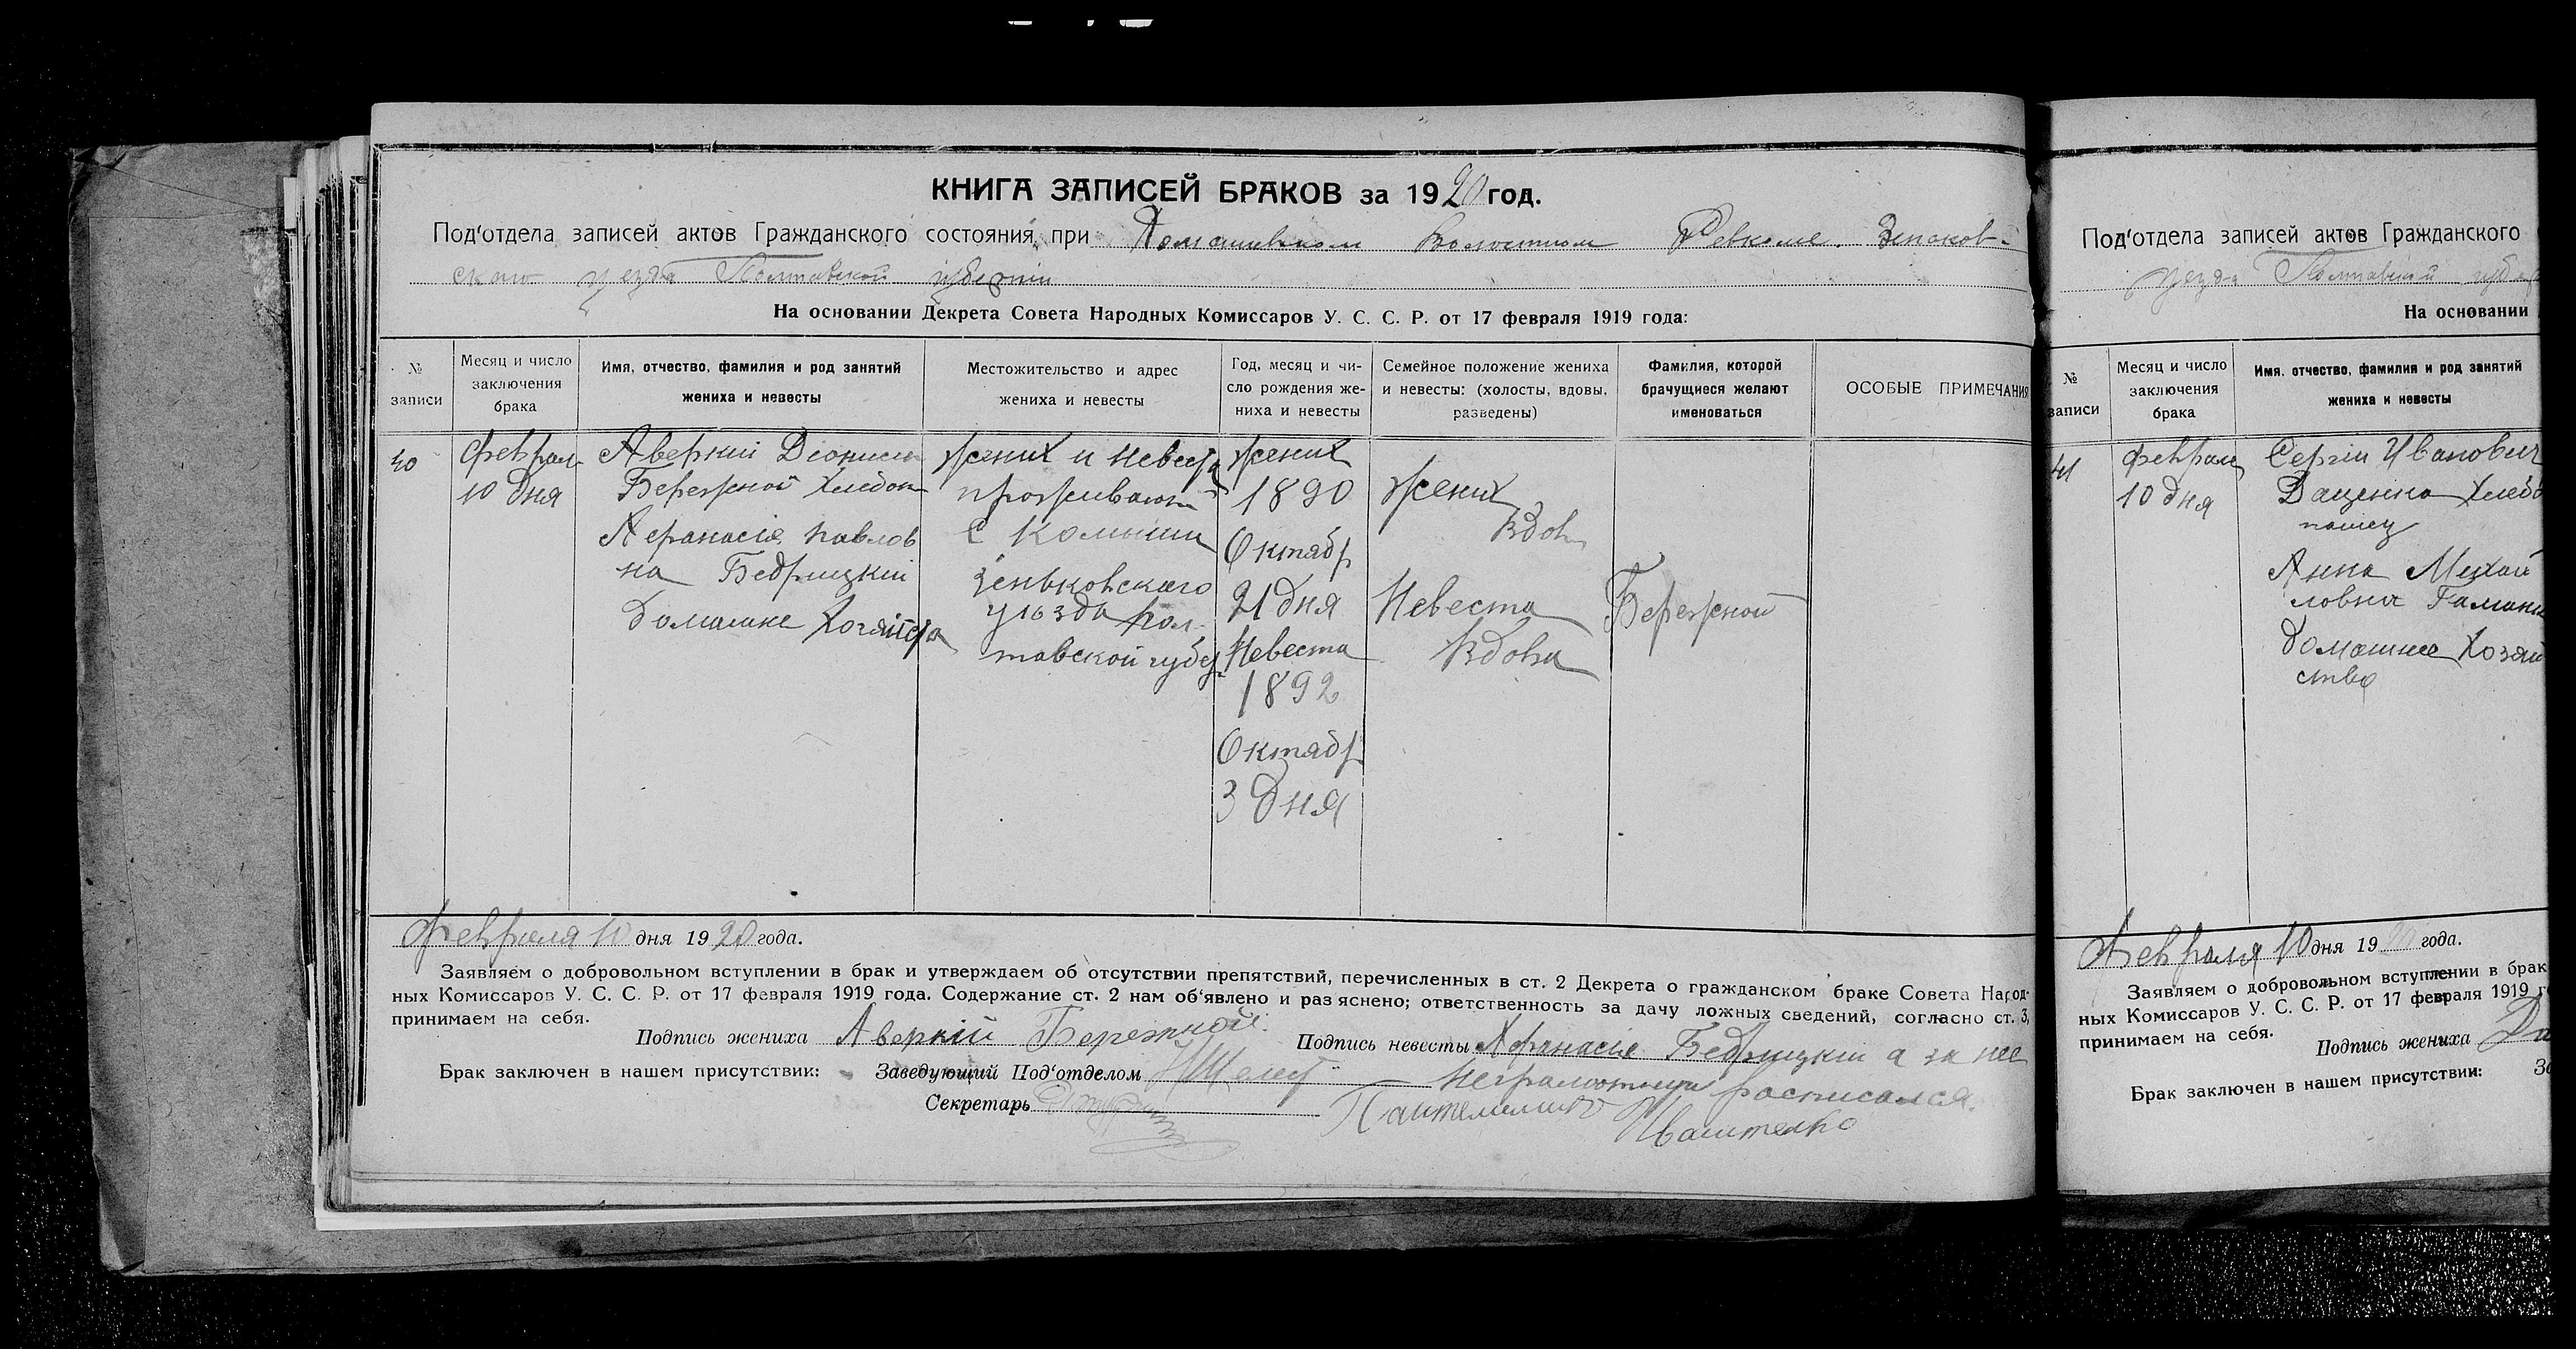 КНИГА ЗАПИСЕЙ БРАКОВ за 1920 год.
Под'отдела записей актов Гражданского состояния, при Комышевском Волостном Ревкоме. Зеньков-
ского уезда Полтавской губернии
На основании Декрета Совета Народных Комиссаров У. С. С. Р. от 17 февраля 1919 года:
№ записи
Месяц и число
заключения
брака
Имя, отчество, фамилия и род занятий
жениха и невесты
Местожительство и адрес
жениха и невесты
Год, месяц и чи-
сло рождения же-
ниха и невесты
Семейное положение жениха
и невесты: (холосты, вдовы,
разведены)
Фамилия, которой
брачущиеся желают
именоваться
ОСОБЫЕ ПРИМЕЧАНИЯ
40
Феврал
10 дня
Аверкий
Бережной
Афанасія Павлов
на Бедрицкій
домашне
жених и невеста
проживают
с Комыши
Зеньковского
уѣзда Пол-
тавской губер
жених
1890
Октябр
21 дня
Невеста
1892
Октябр
3 дня
жених
вдов
Невеста
вдова
Бережной
Февраля 10 дня 1920 года.
Заявляем о добровольном вступлении в брак и утверждаем об отсутствии препятствий, перечисленных в ст. 2 Декрета о гражданском браке Совета Народ-
ных Комиссаров У. С. С. Р. от 17 февраля 1919 года. Содержание ст. 2 нам об'явлено и раз яснено; ответственность за дачу ложных сведений, согласно ст. 3,
принимаем на себя.
Подпись жениха Аверкій Бережной. Подпись невесты Афанасіе Бедрицкій а за нее
неграмотную расписался
Иваштенко
Брак заключен в нашем присутствии: Заведующий Под'отделом
Секретарь
Под'отдела записей актов Гражданского
уезда Полтавской губер
На основании
№
записи
Месяц и число
заключения
брака
Имя, отчество, фамилия и род занятий
жениха и невесты
41
Феврал
10 дня
Сергіи Иванович
Ващенко Хлебо
пашец
Анна Михай
ловна
домашнее Хозяй
ство
Февраля 10 дня 19 года.
Заявляем о добровольном вступлении в брак
ных Комиссаров У. С. С. Р. от 17 февраля 1919 г
принимаем на себя.
Подпись жениха
Брак заключен в нашем присутствии: